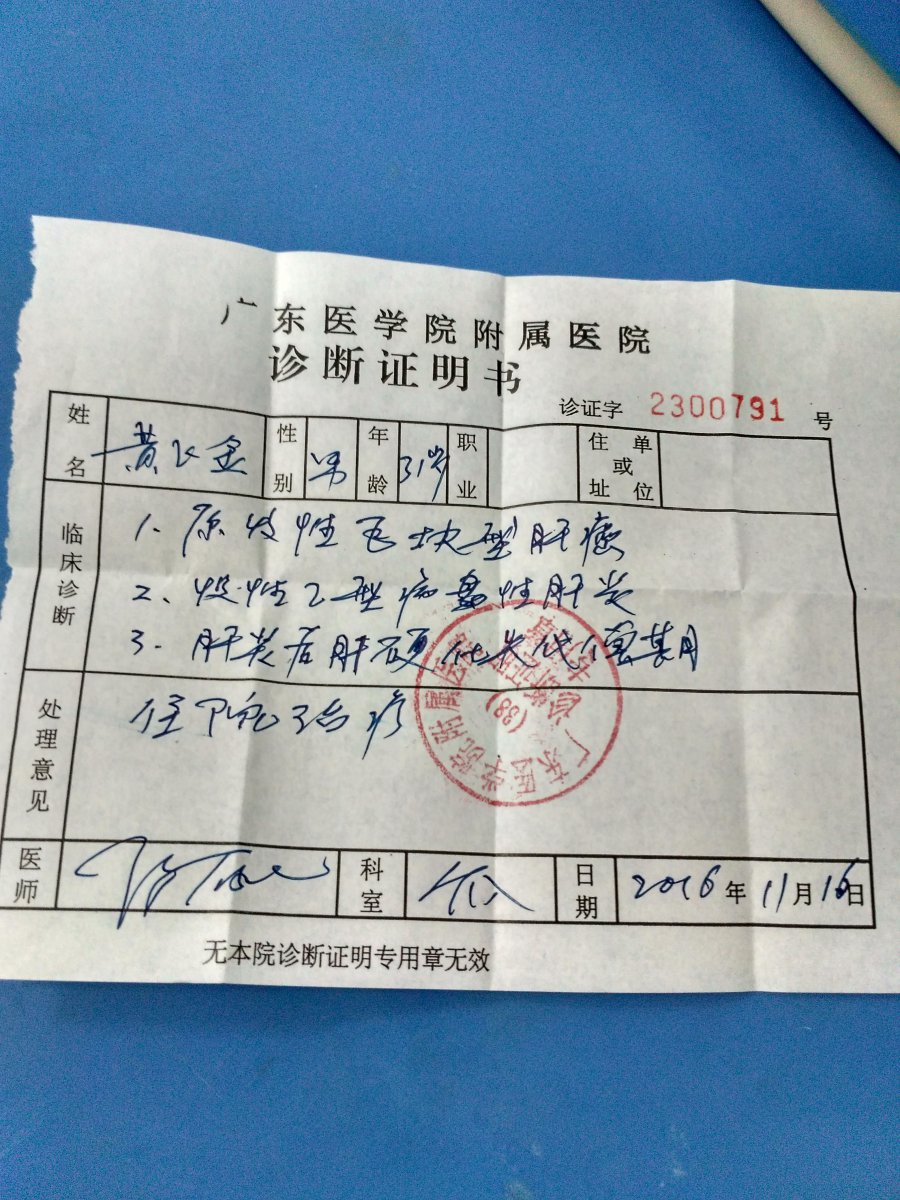 广东医学院附属医院
诊断证明书
诊证字 2300791 号
姓名 黄 金 性别 男 年龄 31岁 职业 住址或单位
临床诊断
1、原发性巨块型肝癌
2、慢性乙型病毒性肝炎
3、肝炎后肝硬化失代偿期
处理意见
住院治疗
广东医学院附属医院
(38)
医师 科室 日期 2016年11月16日
无本院诊断证明专用章无效